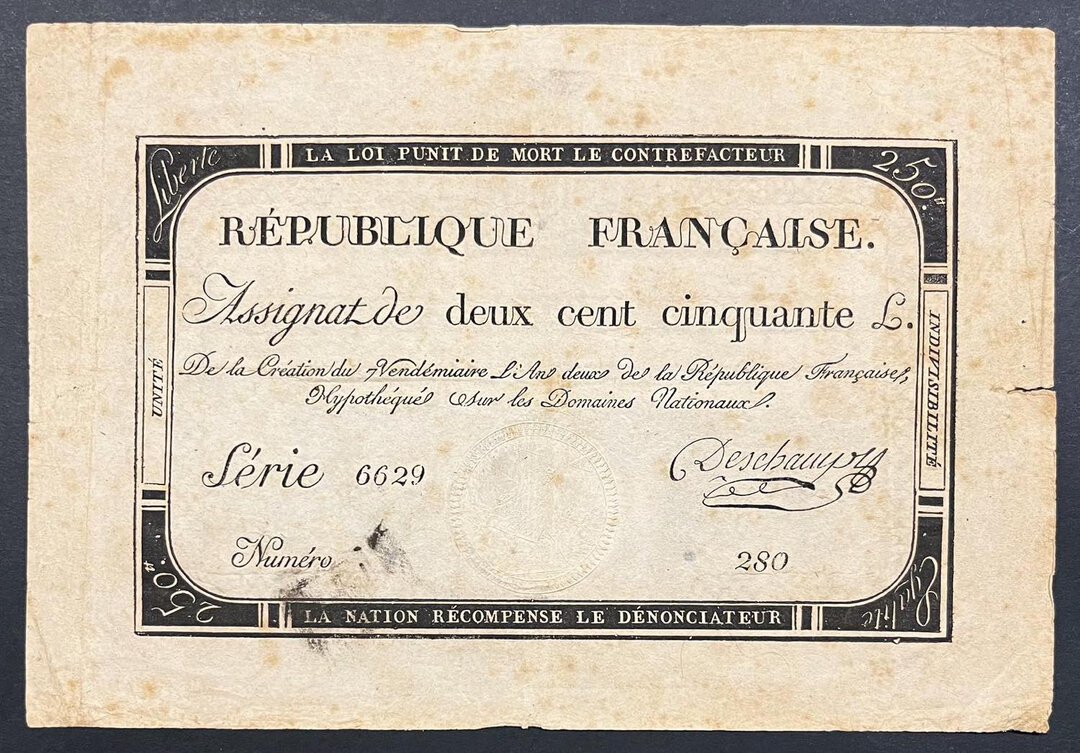 Liberté
LA LOI PUNIT DE MORT LE CONTREFACTEUR
250.ᵗᵗ
RÉPUBLIQUE FRANÇAISE.
Assignat de deux cent cinquante L.
De la Création du 7 Vendémiaire L'An deux de la République Française,
Hypothéqué sur les Domaines Nationaux.
UNITÉ
INDIVISIBILITÉ
Série 6629
Deschamps
Numéro 280
250.ᵗᵗ
LA NATION RÉCOMPENSE LE DÉNONCIATEUR
Egalité